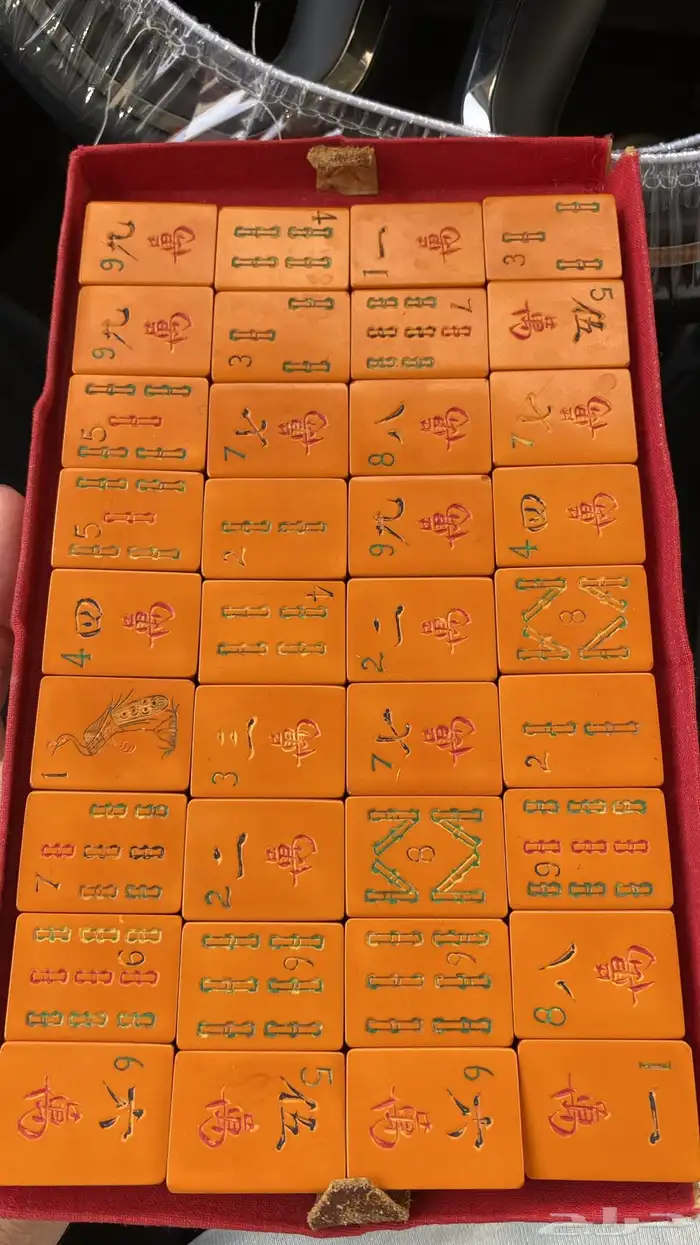 9 九 萬 4 1 一 萬 3
9 九 萬 3 7 5 伍 萬
5 7 七 萬 8 八 萬 7 七 萬
5 2 9 九 萬 4 四 萬
4 四 萬 4 2 二 萬 8
1 3 三 萬 7 七 萬 2
7 2 二 萬 8 9
9 6 6 8 八 萬
6 六 萬 5 伍 萬 6 六 萬 1 一 萬